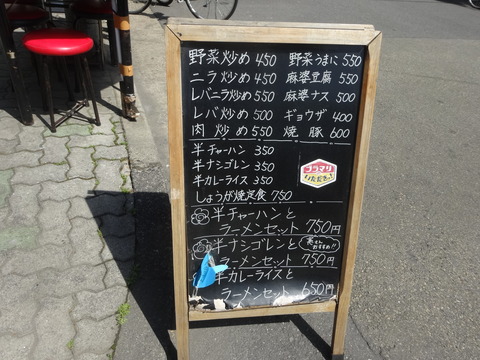 野菜炒め 450 野菜うまに 550
ニラ炒め 450 麻婆豆腐 550
レバニラ炒め 550 麻婆ナス 500
レバ炒め 500 ギョウザ 400
肉炒め 550 焼豚 600
半チャーハン 350
半ナシゴレン 350
半カレーライス 350
しょうが焼定食 750
半チャーハンと
ラーメンセット 750円
半ナシゴレンと
おすすめ!!
ラーメンセット 750円
半カレーライスと
ラーメンセット 650円